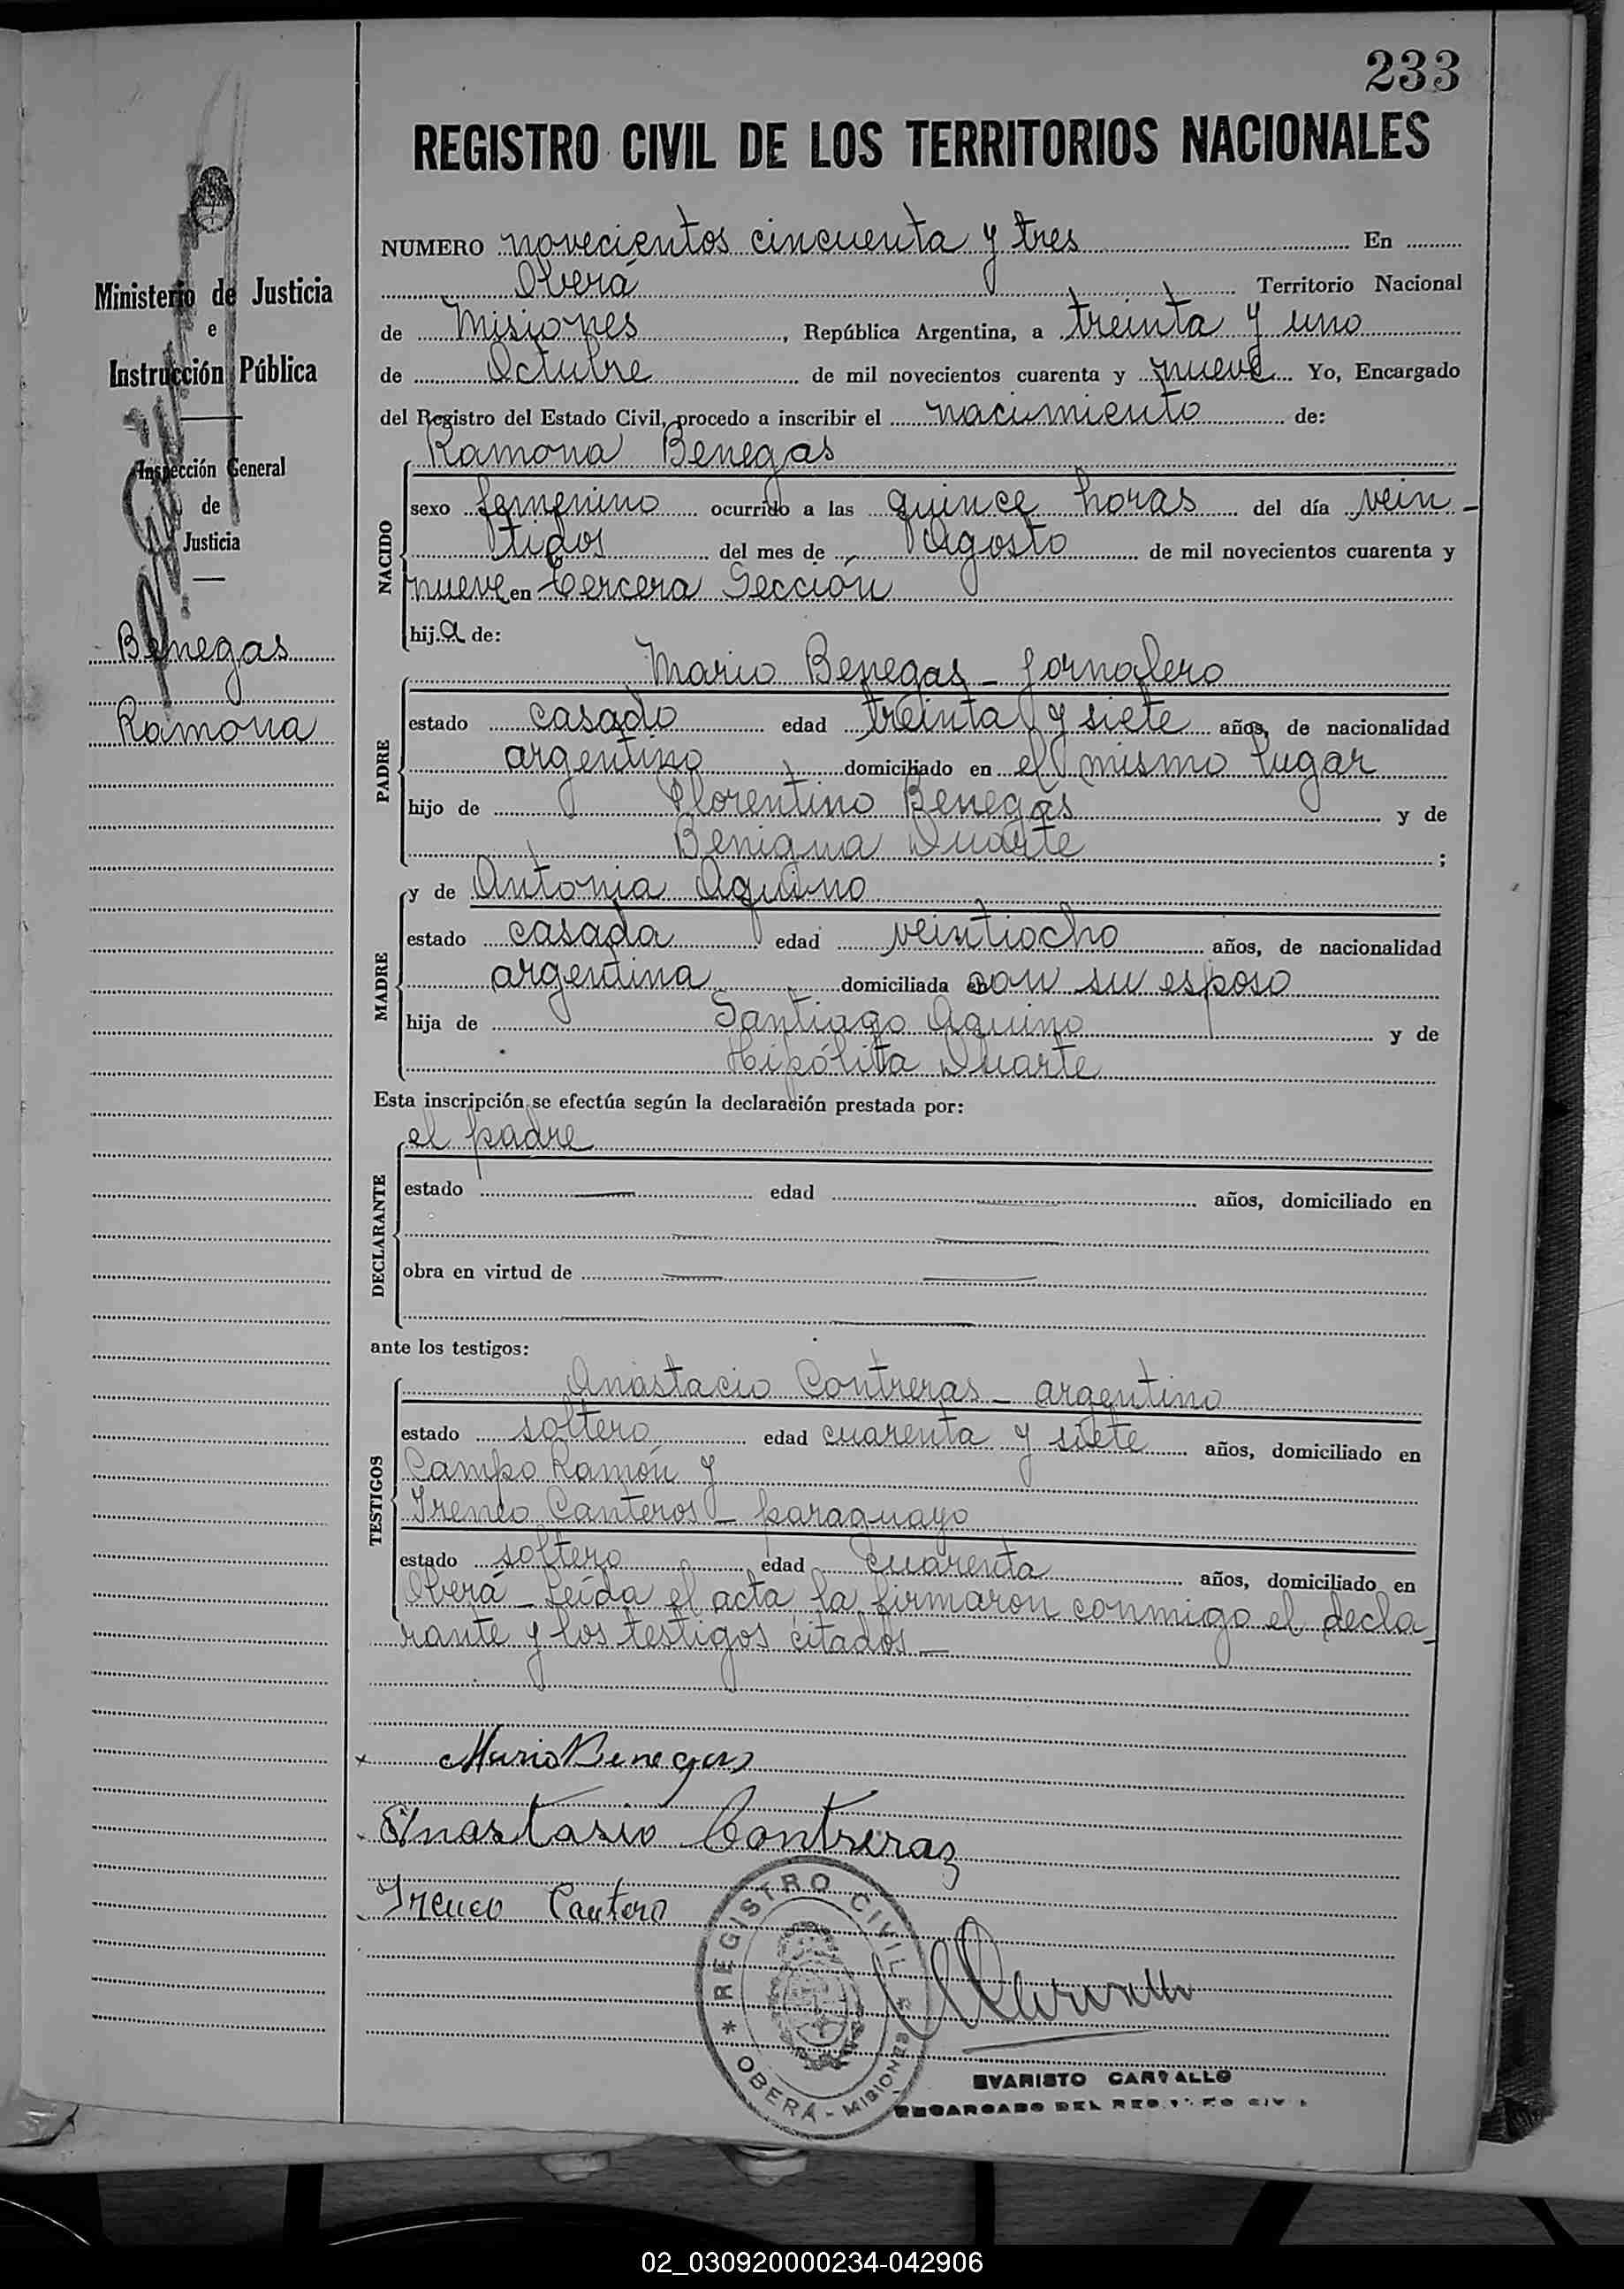 233
REGISTRO CIVIL DE LOS TERRITORIOS NACIONALES
Ministerio de Justicia
e
Instrucción Pública
Inspección General
de
Justicia
Benegas
Ramona
NUMERO novecientos cincuenta y tres En
Oberá Territorio Nacional
de Misiones, República Argentina, a treinta y uno
de Octubre de mil novecientos cuarenta y nueve Yo, Encargado
del Registro del Estado Civil, procedo a inscribir el nacimiento de:
Ramona Benegas
NACIDO
sexo femenino ocurrido a las quince horas del día vein-
tidos del mes de Agosto de mil novecientos cuarenta y
nueve en tercera Sección
hija de:
PADRE
Mario Benegas - Jornalero
estado casado edad treinta y siete años, de nacionalidad
argentino domiciliado en el mismo lugar
hijo de Florentino Benegas y de
Benigna Duarte;
MADRE
y de Antonia Aquino
estado casada edad veintiocho años, de nacionalidad
argentina domiciliada con su esposo
hija de Santiago Aquino y de
Hipólita Duarte
Esta inscripción se efectúa según la declaración prestada por:
DECLARANTE
el padre
estado — edad años, domiciliado en
obra en virtud de
ante los testigos:
TESTIGOS
Anastacio Contreras - argentino
estado soltero edad cuarenta y siete años, domiciliado en
Campo Ramón y
Ireneo Canteros - paraguayo
estado soltero edad cuarenta años, domiciliado en
Oberá - Leída el acta, la firmaron conmigo el decla-
rante y los testigos citados -
Mario Benegas
Anastasio Contreraz
Ireneo Cantero
REGISTRO CIVIL
OBERÁ - MISIONES
EVARISTO CARVALLO
ENCARGADO DEL REGISTRO CIVIL
02_030920000234-042906